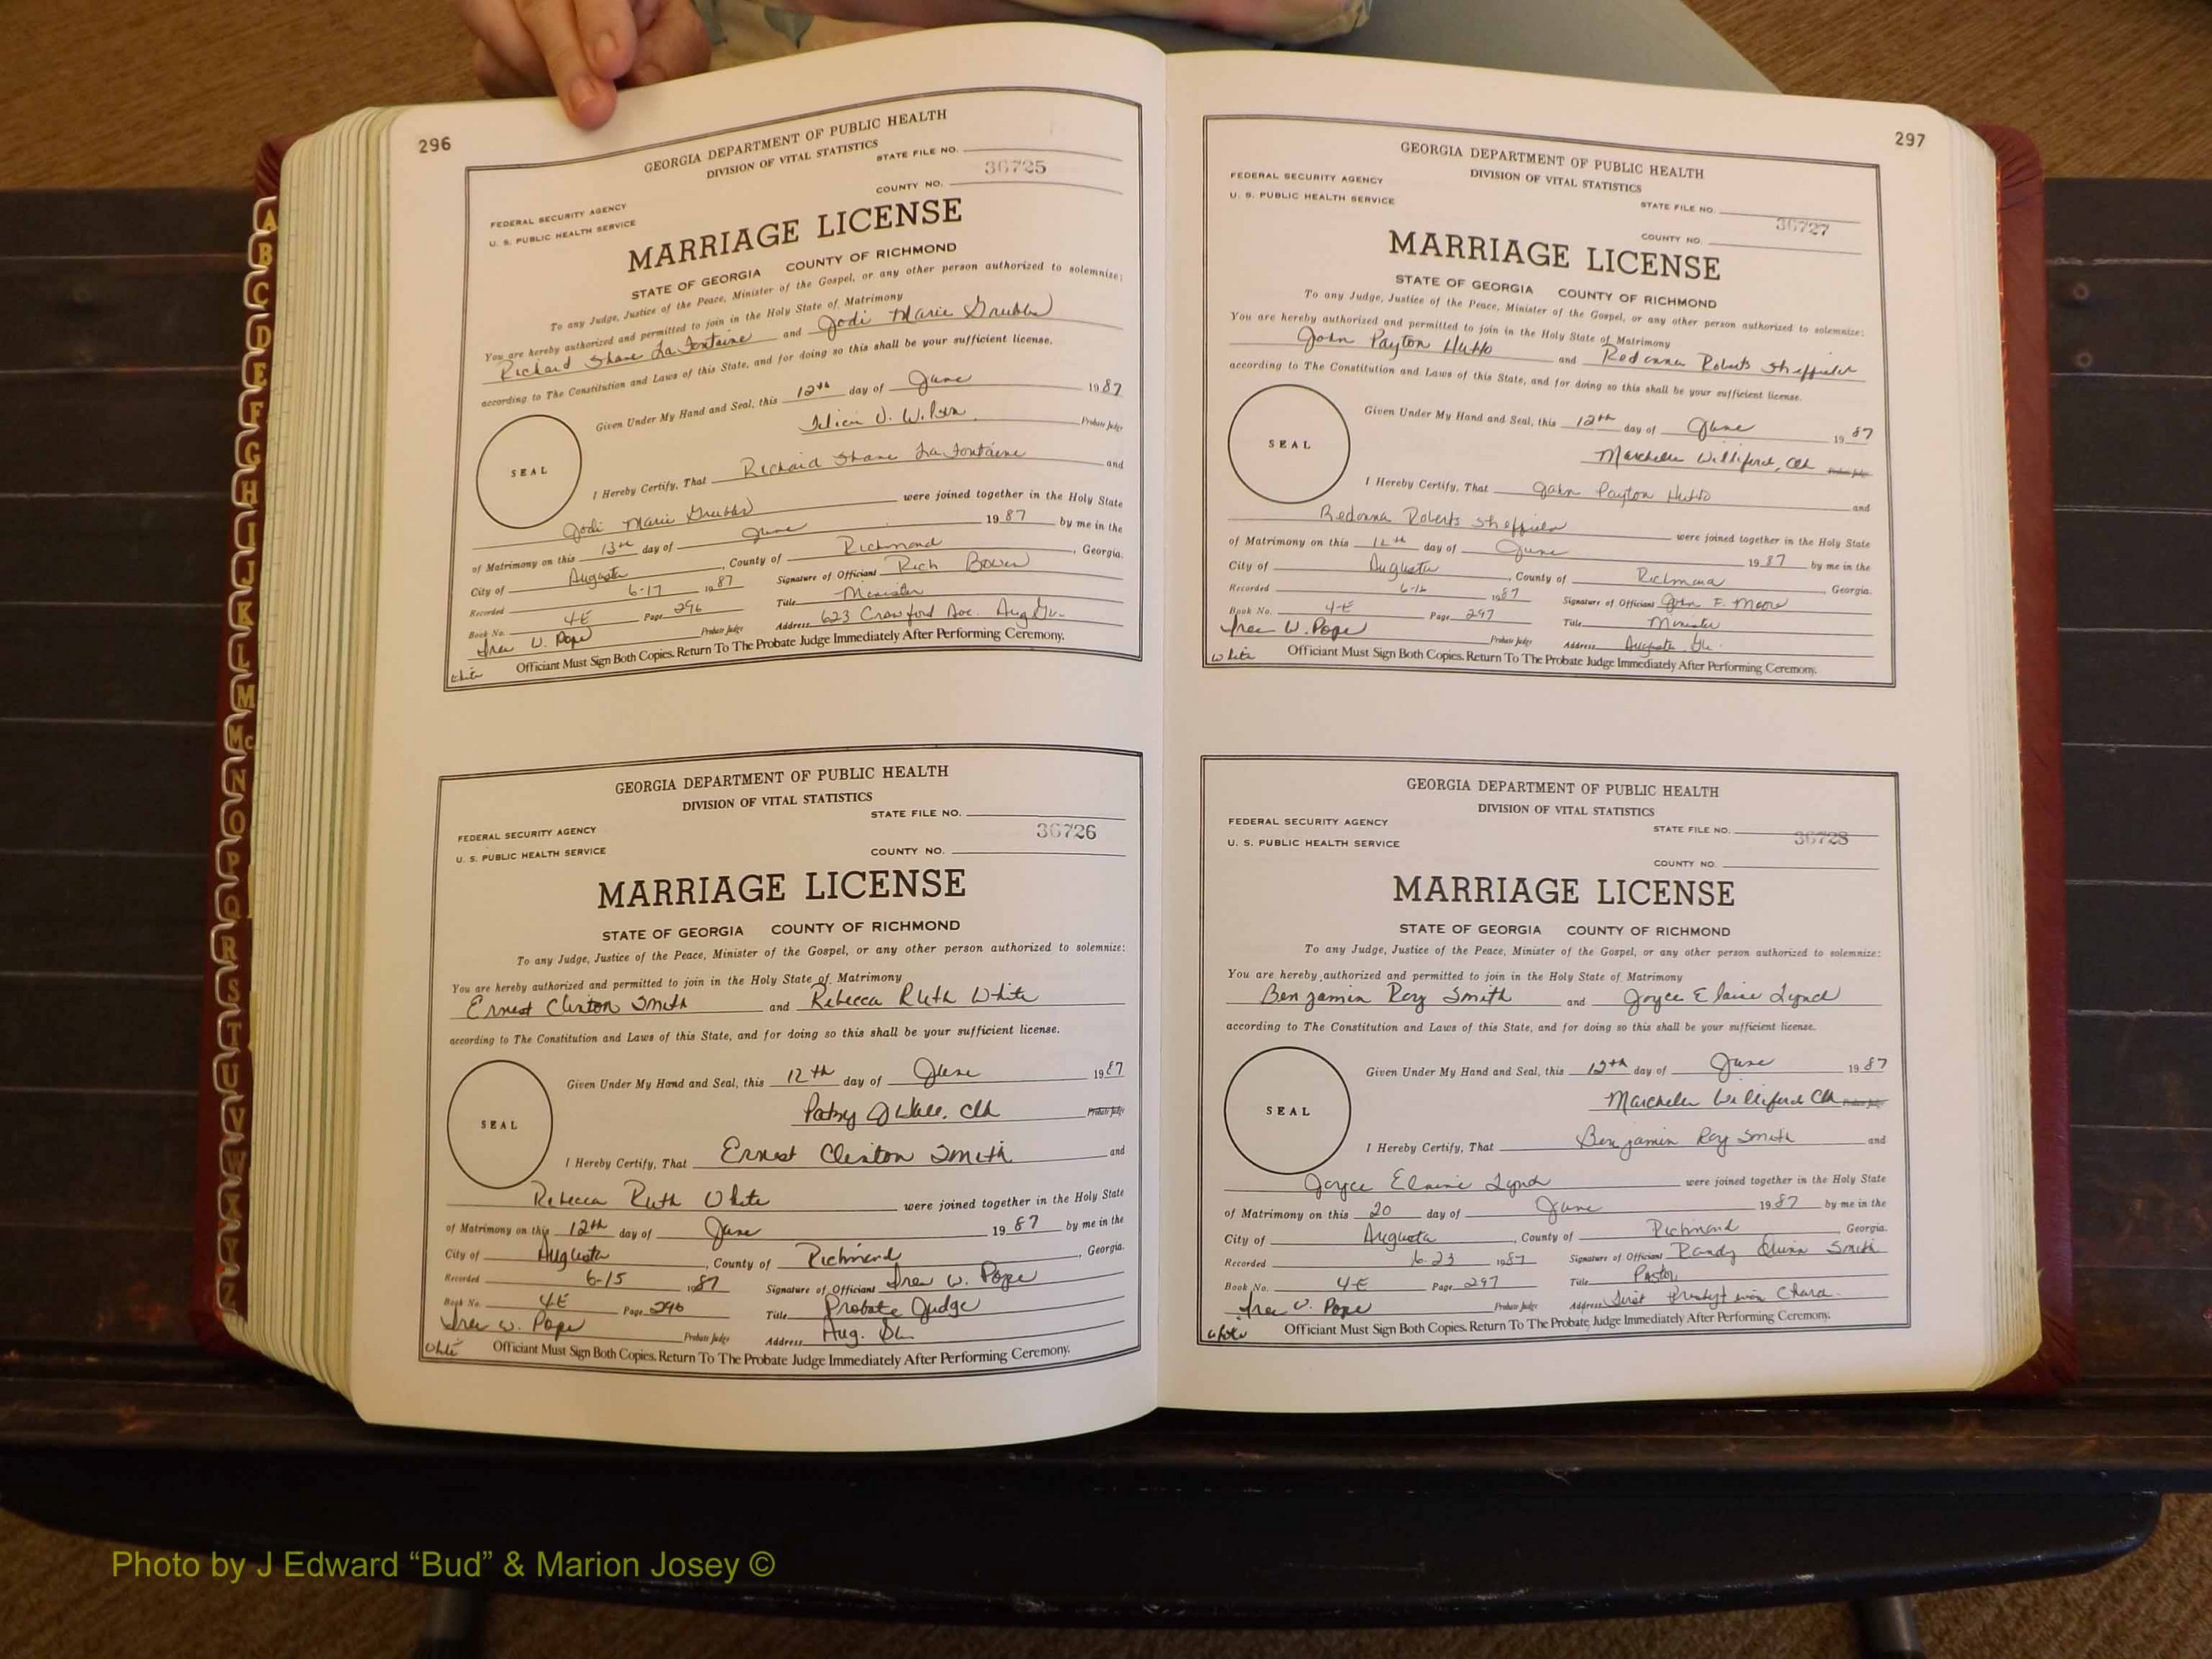 296
GEORGIA DEPARTMENT OF PUBLIC HEALTH
DIVISION OF VITAL STATISTICS
STATE FILE NO.
36725
COUNTY NO.
FEDERAL SECURITY AGENCY
U. S. PUBLIC HEALTH SERVICE
MARRIAGE LICENSE
STATE OF GEORGIA COUNTY OF RICHMOND
To any Judge, Justice of the Peace, Minister of the Gospel, or any other person authorized to solemnize:
You are hereby authorized and permitted to join in the Holy State of Matrimony
Richard Shane La Fontaine and Jodi Marie Grubbs
according to The Constitution and Laws of this State, and for doing so this shall be your sufficient license.
Given Under My Hand and Seal, this 12th day of June 1987
Probate Judge
SEAL
I Hereby Certify, That Richard Shane La Fontaine and
Jodi Marie Grubbs were joined together in the Holy State
of Matrimony on this 13th day of June 1987 by me in the
City of Augusta, County of Richmond, Georgia.
Recorded 6-17 1987 Signature of Officiant Rich Bower
Book No. 4E Page 296 Title Minister
W. Pope Probate Judge Address 623 Crawford Ave. Aug Ga.
White Officiant Must Sign Both Copies. Return To The Probate Judge Immediately After Performing Ceremony.
GEORGIA DEPARTMENT OF PUBLIC HEALTH
DIVISION OF VITAL STATISTICS
STATE FILE NO.
36726
FEDERAL SECURITY AGENCY
U. S. PUBLIC HEALTH SERVICE
COUNTY NO.
MARRIAGE LICENSE
STATE OF GEORGIA COUNTY OF RICHMOND
To any Judge, Justice of the Peace, Minister of the Gospel, or any other person authorized to solemnize:
You are hereby authorized and permitted to join in the Holy State of Matrimony
Ernest Clinton Smith and Rebecca Ruth White
according to The Constitution and Laws of this State, and for doing so this shall be your sufficient license.
Given Under My Hand and Seal, this 12th day of June 1987
Patsy J Wall, Clk Probate Judge
SEAL
I Hereby Certify, That Ernest Clinton Smith and
Rebecca Ruth White were joined together in the Holy State
of Matrimony on this 12th day of June 1987 by me in the
City of Augusta, County of Richmond, Georgia.
Recorded 6-15 1987 Signature of Officiant W. Pope
Book No. 4E Page 296 Title Probate Judge
W. Pope Probate Judge Address Aug. Ga
White Officiant Must Sign Both Copies. Return To The Probate Judge Immediately After Performing Ceremony.
297
GEORGIA DEPARTMENT OF PUBLIC HEALTH
DIVISION OF VITAL STATISTICS
FEDERAL SECURITY AGENCY
U. S. PUBLIC HEALTH SERVICE
STATE FILE NO.
36727
COUNTY NO.
MARRIAGE LICENSE
STATE OF GEORGIA COUNTY OF RICHMOND
To any Judge, Justice of the Peace, Minister of the Gospel, or any other person authorized to solemnize:
You are hereby authorized and permitted to join in the Holy State of Matrimony
John Payton Hutto and Redonna Roberts Sheffield
according to The Constitution and Laws of this State, and for doing so this shall be your sufficient license.
Given Under My Hand and Seal, this 12th day of June 1987
Marchelle Williford, Clk Probate Judge
SEAL
I Hereby Certify, That John Payton Hutto and
Redonna Roberts Sheffield were joined together in the Holy State
of Matrimony on this 12th day of June 1987 by me in the
City of Augusta, County of Richmond, Georgia.
Recorded 1987 Signature of Officiant John F. Moore
Book No. 4-E Page 297 Title Minister
W. Pope Probate Judge Address Augusta Ga.
White Officiant Must Sign Both Copies. Return To The Probate Judge Immediately After Performing Ceremony.
GEORGIA DEPARTMENT OF PUBLIC HEALTH
DIVISION OF VITAL STATISTICS
FEDERAL SECURITY AGENCY
STATE FILE NO.
36728
U. S. PUBLIC HEALTH SERVICE
COUNTY NO.
MARRIAGE LICENSE
STATE OF GEORGIA COUNTY OF RICHMOND
To any Judge, Justice of the Peace, Minister of the Gospel, or any other person authorized to solemnize:
You are hereby authorized and permitted to join in the Holy State of Matrimony
Benjamin Roy Smith and Joyce Elaine Lynch
according to The Constitution and Laws of this State, and for doing so this shall be your sufficient license.
Given Under My Hand and Seal, this 12th day of June 1987
Marchelle Williford Clk Probate Judge
SEAL
I Hereby Certify, That Benjamin Roy Smith and
Joyce Elaine Lynch were joined together in the Holy State
of Matrimony on this 20 day of June 1987 by me in the
City of Augusta, County of Richmond, Georgia.
Recorded 6-23 1987 Signature of Officiant Randy Quinn Smith
Book No. 4-E Page 297 Title Pastor
Pope Probate Judge Address First Presbyterian Church
White Officiant Must Sign Both Copies. Return To The Probate Judge Immediately After Performing Ceremony.
A
B
C
D
E
F
G
H
I
J
K
L
M
Mc
N
O
P
Q
R
S
T
U
V
W
X
Y
Z
Photo by J Edward “Bud” & Marion Josey ©